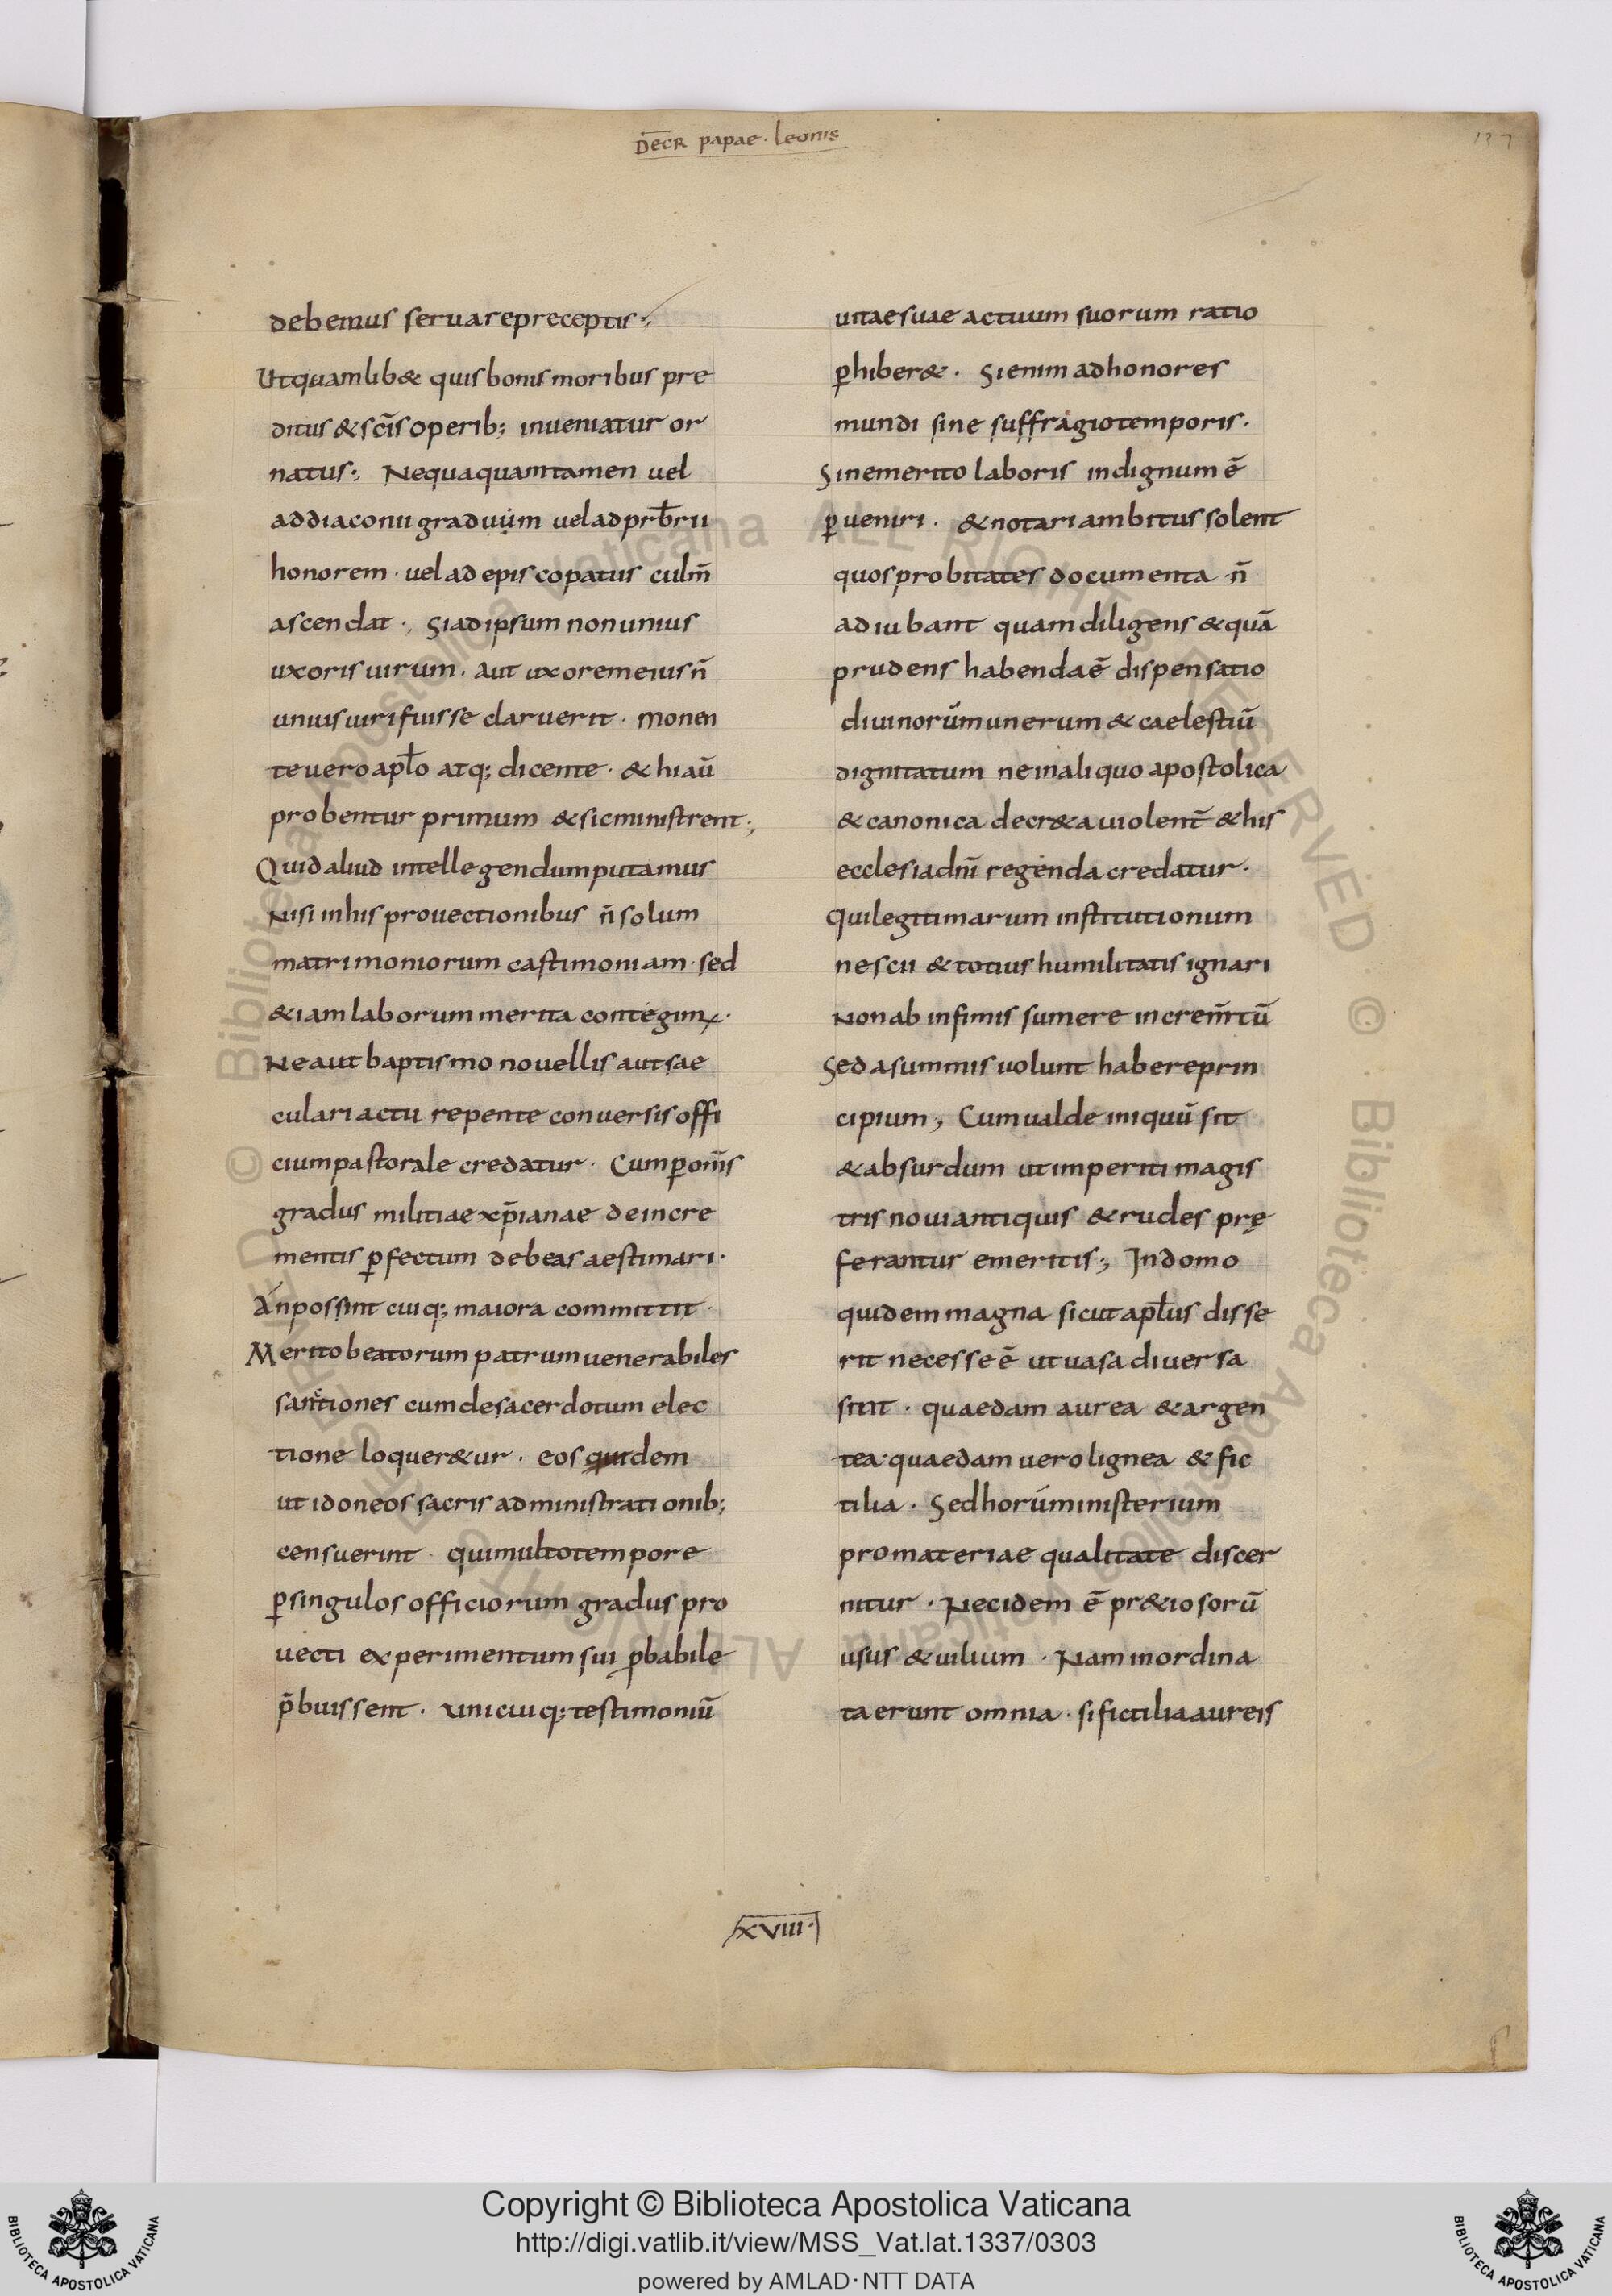 DECR̄ papae · leonis
137
debemus seruare preceptis·,
Ut quamlib& quis bonis moribus pre
ditus & sc̄is operib; inueniatur or
natus·, Nequaquam tamen uel
ad diaconii graduum uel ad prb̄rii
honorem · uel ad episcopatus culm̄
ascendat ·, Si ad ipsum non unius
uxoris uirum · aut uxorem eius n̄
unius uiri fuisse claruerit · monen
te uero apl̄o atq; dicente · & hi aū
probentur primum & sic ministrent·,
Quid aliud intellegendum putamus
Nisi in his prouectionibus n̄ solum
matrimoniorum castimoniam · sed
&iam laborum merita
Ne aut baptismo nouellis aut sae
culari actu repente conuersis offi
cium pastorale credatur · Cum ꝑ om̄s
gradus militiae xp̄ianae de incre
mentis ꝑfectum debeas aestimari ·
An possint cuiq; maiora committit ·
Merito beatorum patrum uenerabiles
santiones cum de sacerdotum elec
tione loquer&ur · eos quidem
ut idoneos sacris administrationib;
censuerint · qui multo tempore
ꝑ singulos officiorum gradus pro
uecti experimentum sui ꝓbabile
p̄buissent · unicuiq; testimoniū
uitae suae actuum suorum ratio
ꝑhiber& · Si enim ad honores
mundi sine suffragio temporis ·
Sine merito laboris indignum ē
ꝑueniri · & notari ambitus solent
quos probitates documenta n̄
adiubant quam diligens & quā
prudens habenda ē dispensatio
diuinorū munerum & caelestiū
dignitatum ne in aliquo apostolica
& canonica decr&a uiolent̄ & his
ecclesia dn̄i regenda credatur ·
Qui legitimarum institutionum
nescii & totius humilitatis ignari
Non ab infimis sumere increm̄tū
Sed a summis uolunt habere prin
cipium·, Cum ualde iniquū sit
& absurdum ut imperiti magis
tris noui antiquis & rudes prę
ferantur emeritis·, In domo
quidem magna sicut apl̄us disse
rit necesse ē ut uasa diuersa
sint · quaedam aurea & argen
tea· quaedam uero lignea & fic
tilia · Sed horū ministerium
pro materiae qualitate discer
nitur · Nec idem ē pr&iosorū
usus & uilium · Nam inordina
ta erunt omnia · si fictilia aureis
XVIII·
© Biblioteca Apostolica Vaticana ALL RIGHTS RESERVED
Copyright © Biblioteca Apostolica Vaticana
http://digi.vatlib.it/view/MSS_Vat.lat.1337/0303
powered by AMLAD·NTT DATA
BIBLIOTECA APOSTOLICA VATICANA
BIBLIOTECA APOSTOLICA VATICANA